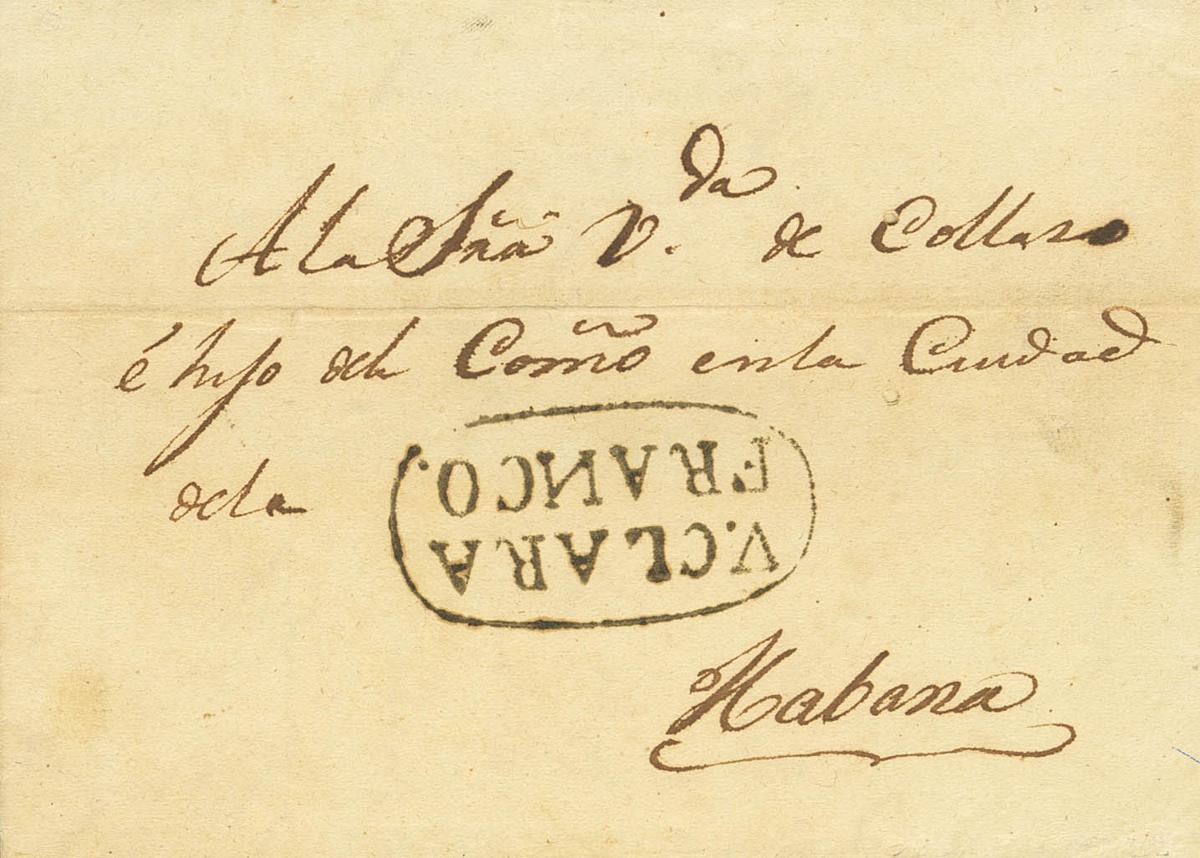 A la Sña V.da de Collazo
é hijo del Comõ en la Ciudad
dela
V. CLARA
FRANCO.
Habana